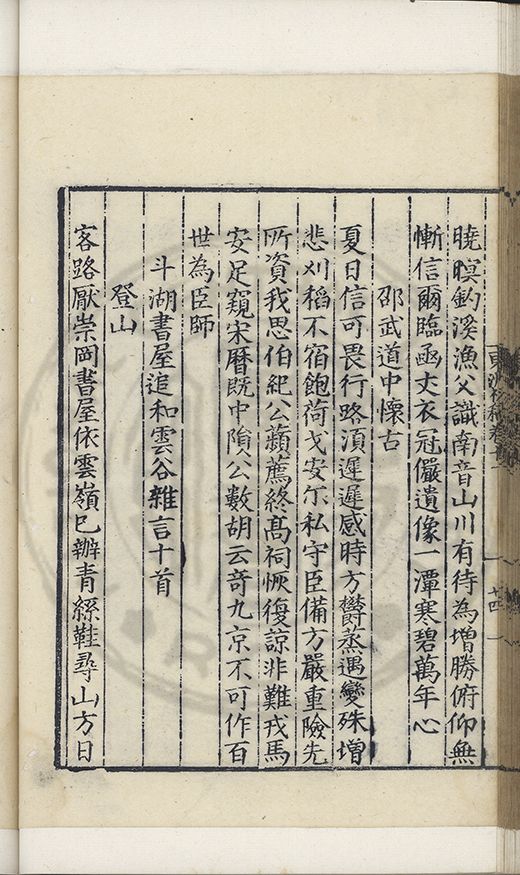 曉暝釣溪漁父識南音山川有待為增勝俯仰無
慚信爾臨函丈衣冠儼遺像一潭寒碧萬年心
邵武道中懷古
夏日信可畏行路湏遲遲感時方欝蒸遇變殊增
悲刈稻不宿飽荷戈安尔私守臣備方嚴重險先
所資我思伯紀公蘋薦終髙祠恢復諒非難戎馬
安足窺宋曆既中隕公數胡云竒九京不可作百
世為臣師
斗湖書屋追和雲谷雜言十首
登山
客路厭崇岡書屋依雲嶺已辦青絲鞋尋山方日